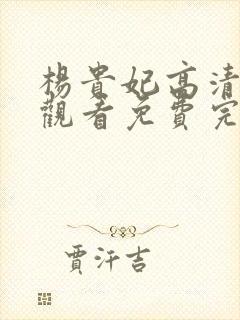 楊貴妃高清
觀看免費完
賈汗吉